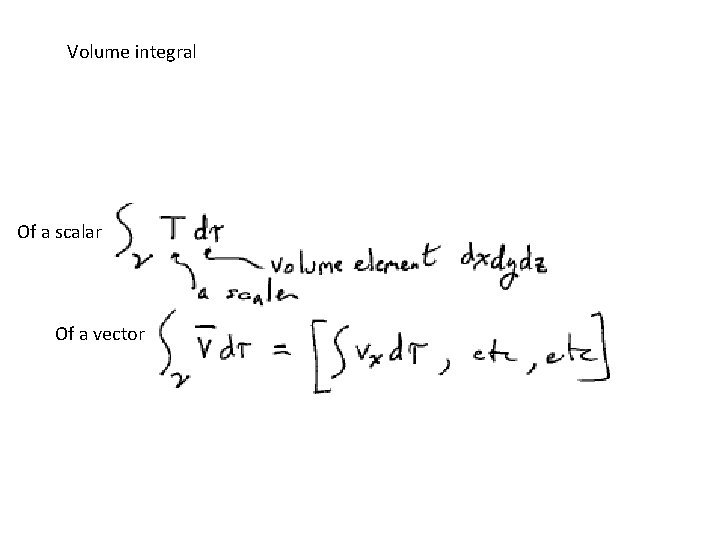 Volume integral
Of a scalar ∫_V T dτ
volume element dxdydz
a scaler
Of a vector ∫_V v̅ dτ = [∫ vₓ dτ, etc, etc]